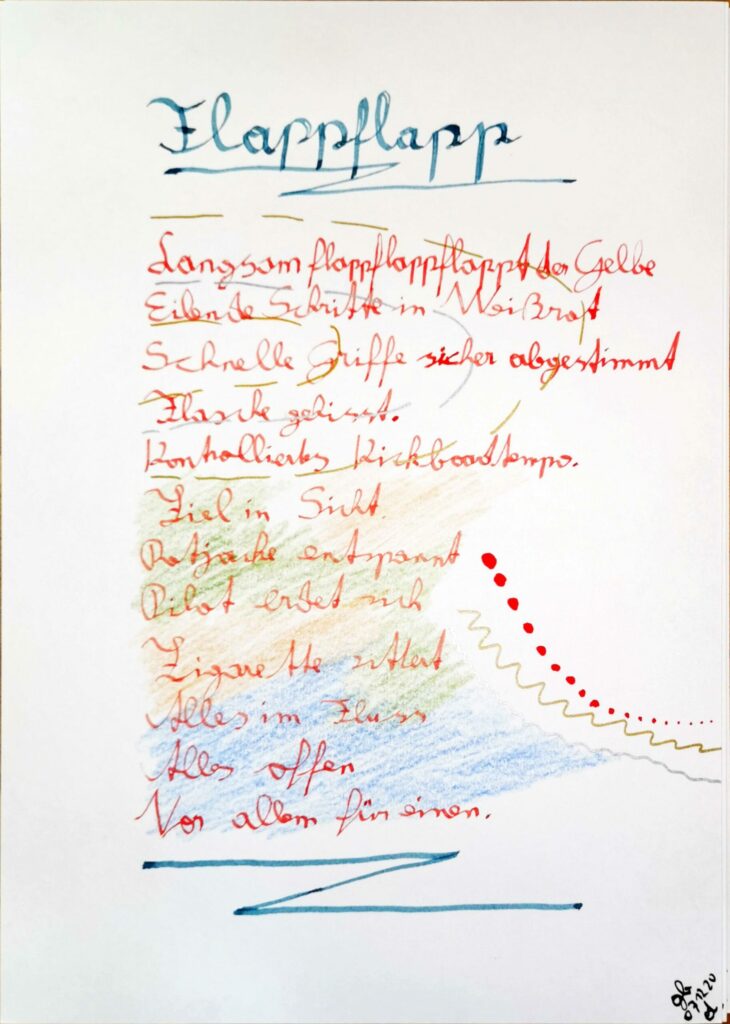 Flappflapp
Langsam flappflappflappt der Gelbe
Eilende Schritte in Weißrot
Schnelle Griffe sicher abgestimmt
Flasche gehisst.
Kontrolliertes Kickboardtempo.
Ziel in Sicht
Rotjacke entspannt
Pilot erdet sich
Zigarette zittert
Alles im Fluss
Alles offen
Vor allem für einen.
07.12.20